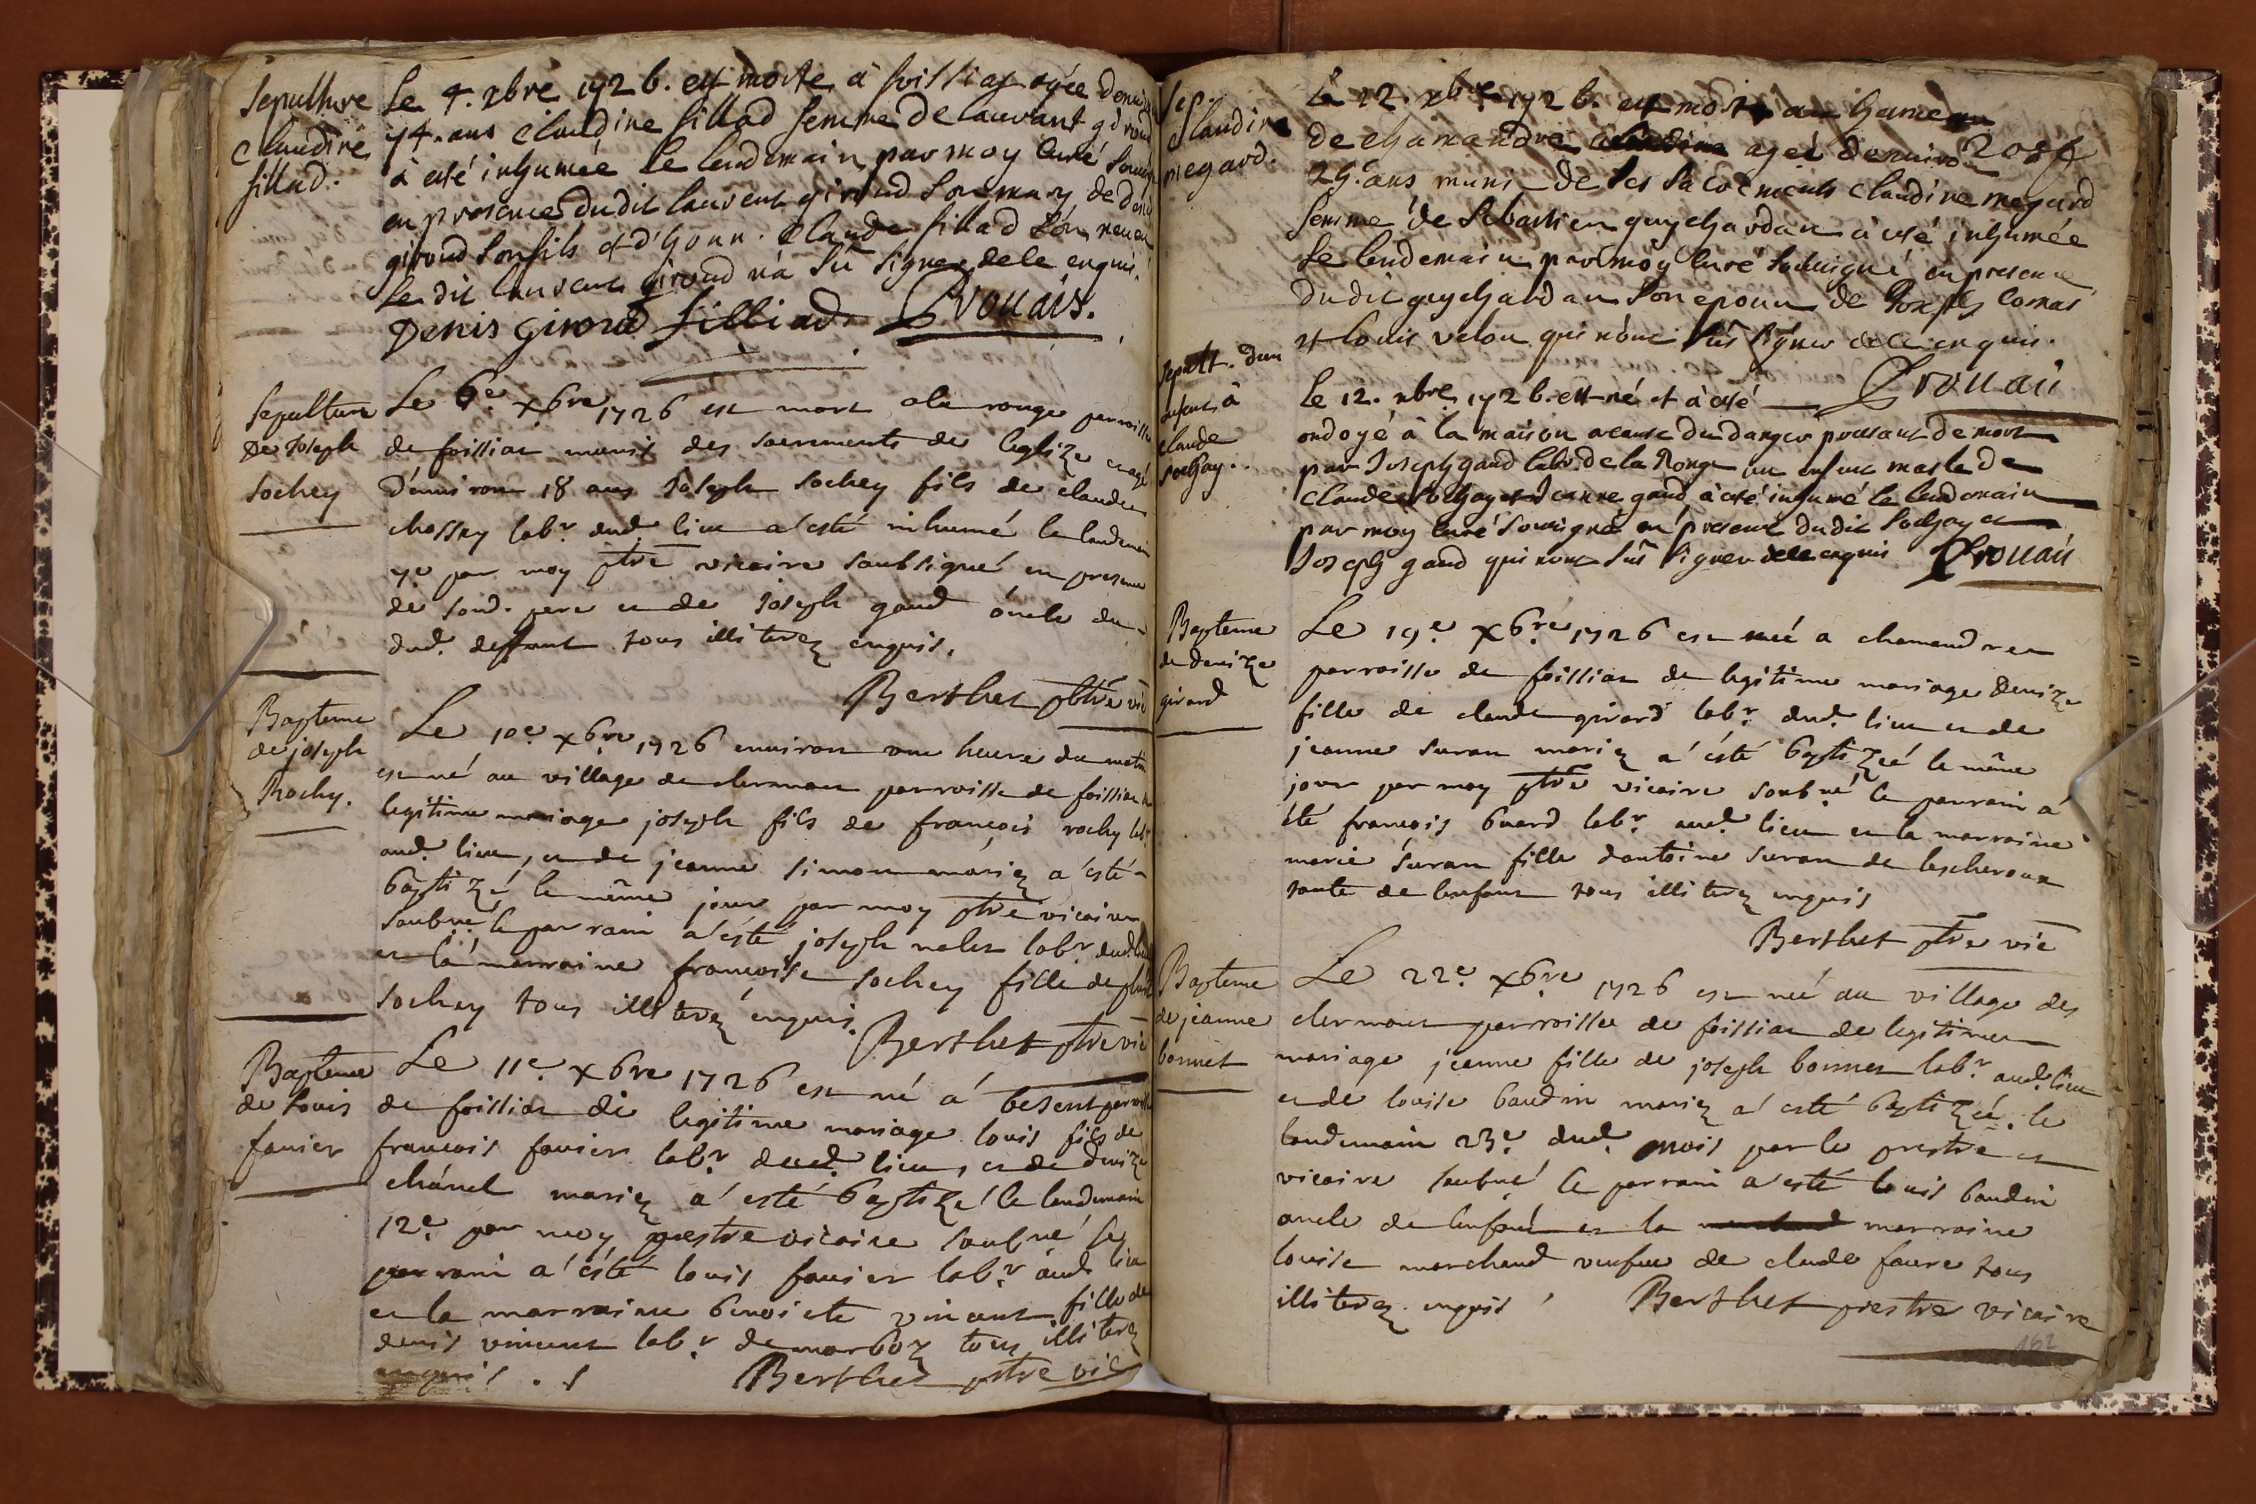 Sepulture
Claudine
fillad.
Le 4. xbre 1726. est morte à foissiaz agée denviron
74. ans Claudine fillad femme de laurant giroud
à esté inhumée le lendemain par moy curé soussigné
en presence dudit laurent giroud son mary de denis
giroud son fils et d'hon. Claude fillad son neveu
le dit laurent giroud n'a sû signer de ce enquis.
Denis giroud filliad Drouais.
Sepulture
De Joseph
sochey
Le 6e x6re 1726 est mort a la rouge parroisse
de foissiat munis des sacrements de leglize et agé
d'environ 18 ans Joseph sochey fils de claude
chossey labr dud lieu a esté inhumé le landemain
7e par moy ptre vicaire soubsigné en presence
de sond. pere et de Joseph gaud oncle du
dud. deffunt tous illiterez enquis.
Berthet ptre vic
Bapteme
de joseph
Rochy.
Le 10e x6re 1726 environ une heure du matin
est né au village de clermont parroisse de foissiat de
legitime mariage joseph fils de françois rochy labr
aud. lieu, et de jeanne simon mariez a esté
baptizé le même jour par moy ptre vicaire
soubné le parrain a esté joseph nelet labr dud. lieu
et la marraine françoise sochey fille de
sochey tous illiterez enquis.
Berthet ptre vic
Bapteme
de louis
favier
Le 11e x6re 1726 est né á besent parroisse
de foissiat de legitime mariage louis fils de
françois favier labr dud. lieu, et de denize
chánel mariez a esté baptizé le lendemain
12e par moy prestre vicaire soubné le
parrain a esté louis favier labr aud lieu
et la marraine benoiste vincent fille de
denis vincent labr de marboz tous illiterez
enquis.
Berthet ptre vic
Sep.
Claudine
megard.
Le 12. xbre 1726. est morte au hameau
de chamandré ageé denviron
29. ans munie de ses sacrements Claudine megard
femme de sebastien guychardan à esté inhumée
le lendemain par moy curé soussigné en presence
dudit guychardan son epoux de Joseph Comas
et louis velon qui n'ont sûs signer de ce enquis.
Drouais
Sepult. dun
enfant à
claude
sochay.
Le 12. xbre 1726. est né et à esté
ondoyé à la maison a cause du danger pressant de mort
par Joseph gaud labr. de la Rouge un enfant masle de
Claude sochay et Jeanne gaud, à esté inhumé le lendemain
par moy curé soussigné en presence dudit sochay et
Joseph gaud qui n'ont sûs signer de ce enquis Drouais
Bapteme
de denize
girard
Le 19e x6re 1726 est neé a chamandre
parroisse de foissiat de legitime mariage denize
fille de claude girard labr. dud. lieu et de
jeanne suran mariez a esté baptizeé le même
jour par moy ptre vicaire soubné le parrain a
été françois buard labr. aud. lieu et la marraine
marie suran fille dantoine suran de lescheroux
tante de lenfant tous illiterez enquis
Berthet ptre vic
Bapteme
de jeanne
bonnet
Le 22e x6re 1726 est neé au village des
clermont parroisse de foissiat de legitime
mariage jeanne fille de joseph bonnet labr aud. lieu
et de louise baudin mariez a esté baptizeé le
landemain 23e dud. mois par le prestre et
vicaire soubné le parrain a esté louis baudin
oncle de lenfant et la marraine
louise marchand veufve de claude favre tous
illiterez enquis Berthet prestre vicaire
162